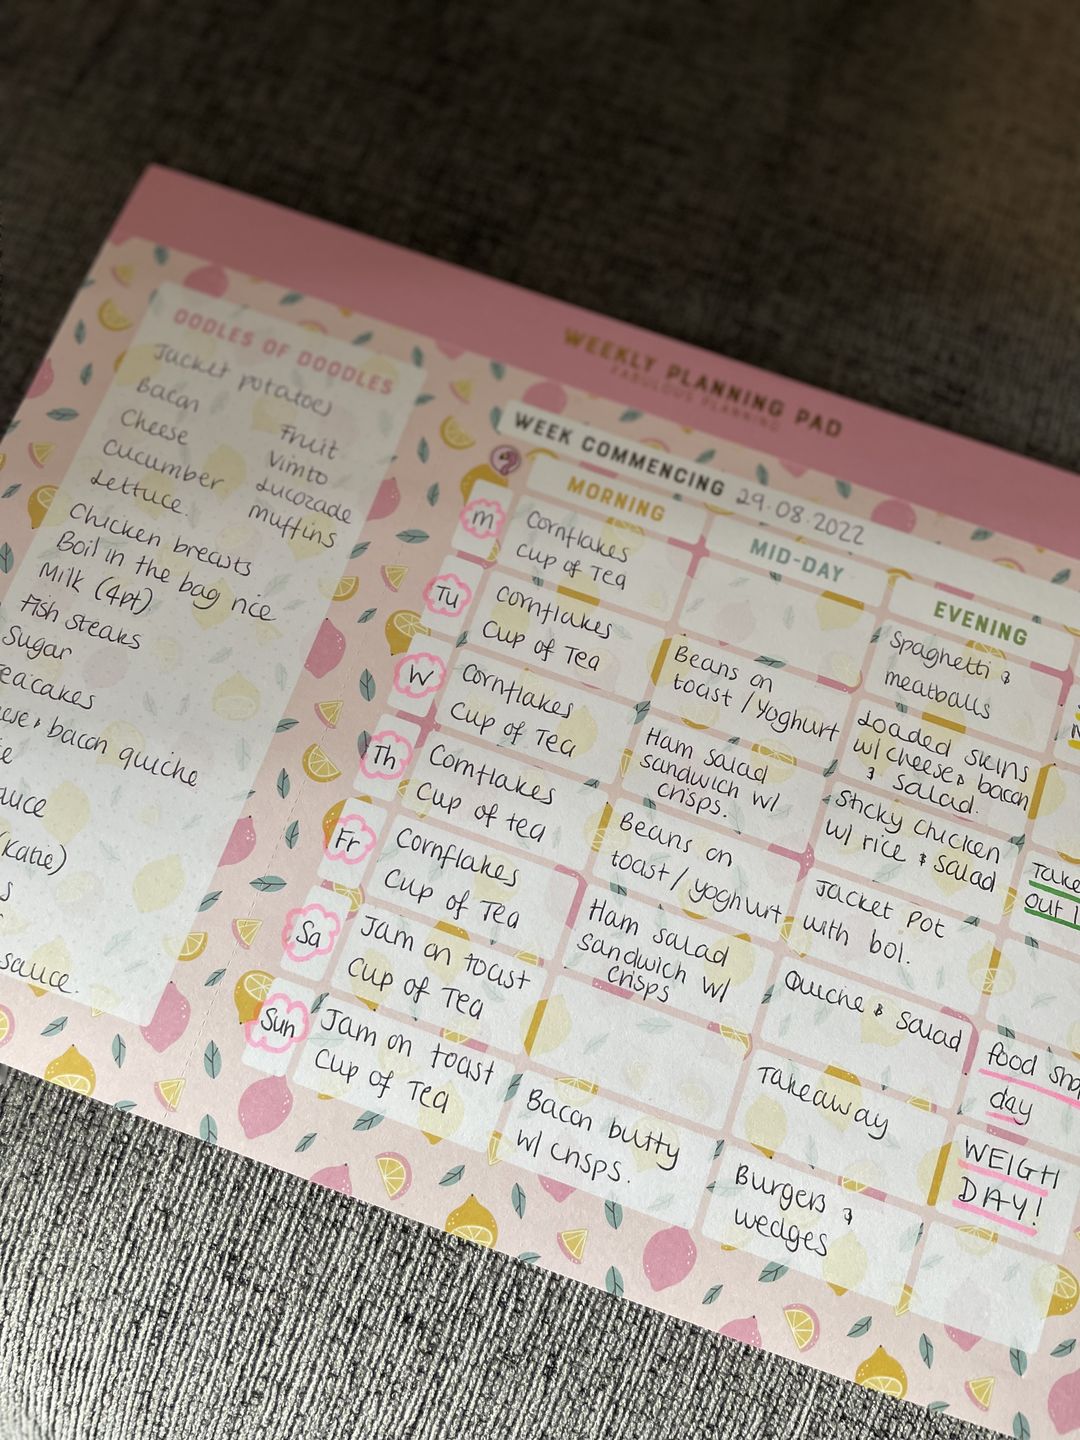 WEEKLY PLANNING PAD
FABULOUS PLANNING
OODLES OF DOODLES
Jacket potatoes
Bacon
Cheese
Cucumber
Lettuce.
Fruit
Vimto
Lucozade
muffins
Chicken breasts
Boil in the bag rice
Milk (4pt)
Fish steaks
Sugar
eacakes
& bacon quiche
(Katie)
sauce.
WEEK COMMENCING 29.08.2022
MORNING
MID-DAY
EVENING
m
Cornflakes
cup of Tea
Spaghetti &
meatballs
Tu
Cornflakes
Cup of Tea
Beans on
toast / Yoghurt
Loaded skins
w/ cheese & bacon
& salad.
W
Cornflakes
Cup of Tea
Ham salad
sandwich w/
crisps.
Sticky chicken
w/ rice & salad
Take
out
Th
Cornflakes
Cup of tea
Beans on
toast / yoghurt
Jacket Pot
with bol.
Fr
Cornflakes
Cup of Tea
Ham salad
sandwich w/
crisps
Quiche & salad
food
day
Sa
Jam on toast
Cup of Tea
Takeaway
WEIGH
DAY!
Sun
Jam on toast
Cup of Tea
Bacon butty
w/ crisps.
Burgers &
wedges